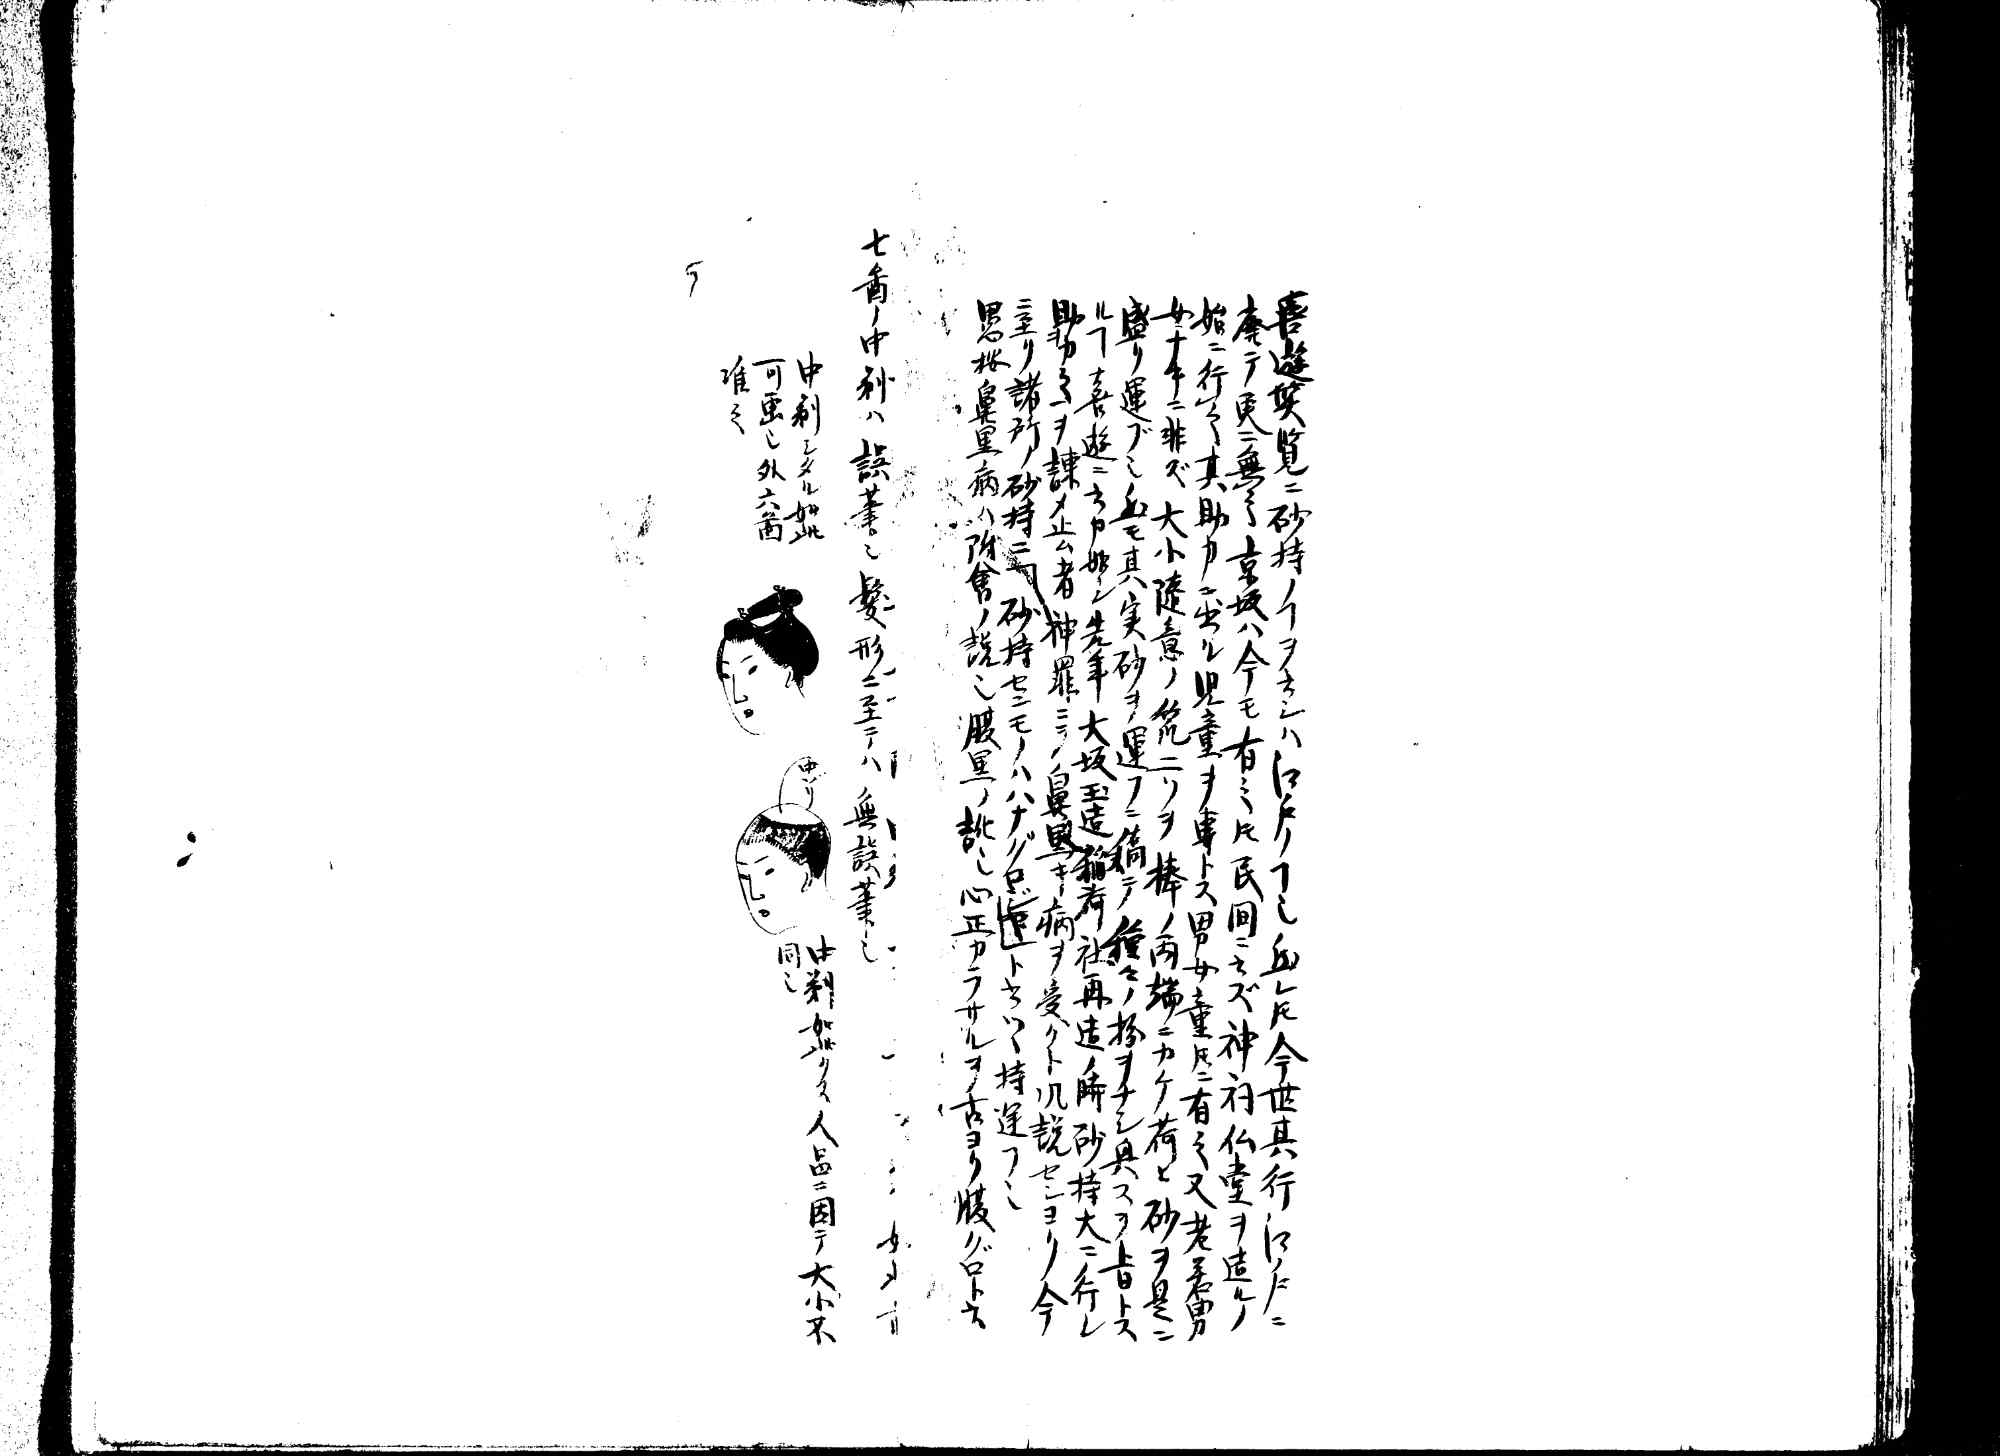 喜遊笑覧ニ砂持ノヿヲ云シハ江戸ノヿ也然レ𪜈今世其行江戸ニ
廃テ更ニ無之京坂ハ今モ有之𪜈民間ニ云ズ神祠仏堂ヲ造ルノ
始ニ行之其助力ニ出ル児童ヲ専トス男女童𪜈ニ有之又老若男
女ナキニ非ズ大小随意ノ笊二ツヲ棒ノ両端ニカケ荷ヒ砂ヲ是ニ
盛リ運ブ也然モ其実砂ヲ運フニ種々ノ扮ヲナシ興スヲ旨トス
ルヿ喜遊ニ云カ如シ先年大坂玉造稲荷社再造ノ時砂持大ニ行レ
助力之ヲ諫メ止ム者神罪ニテ鼻黒キ病ヲ受クト風説セシヨリ今
ニ至リ諸所ノ砂持ニ砂持セシモノハハナグロジャト云ツヽ持運フ也
思按鼻黒病ハ附會ノ説也腹黒ノ訛也心正カラサルヲ古ヨリ腹グロト云
七番ノ中剃ハ誤筆也髪形ニ至テハ無誤筆也
中剃シタル如此
可画也外六箇
准之
中ゾリ
中剃如此クス人品ニ因テ大小不
同也